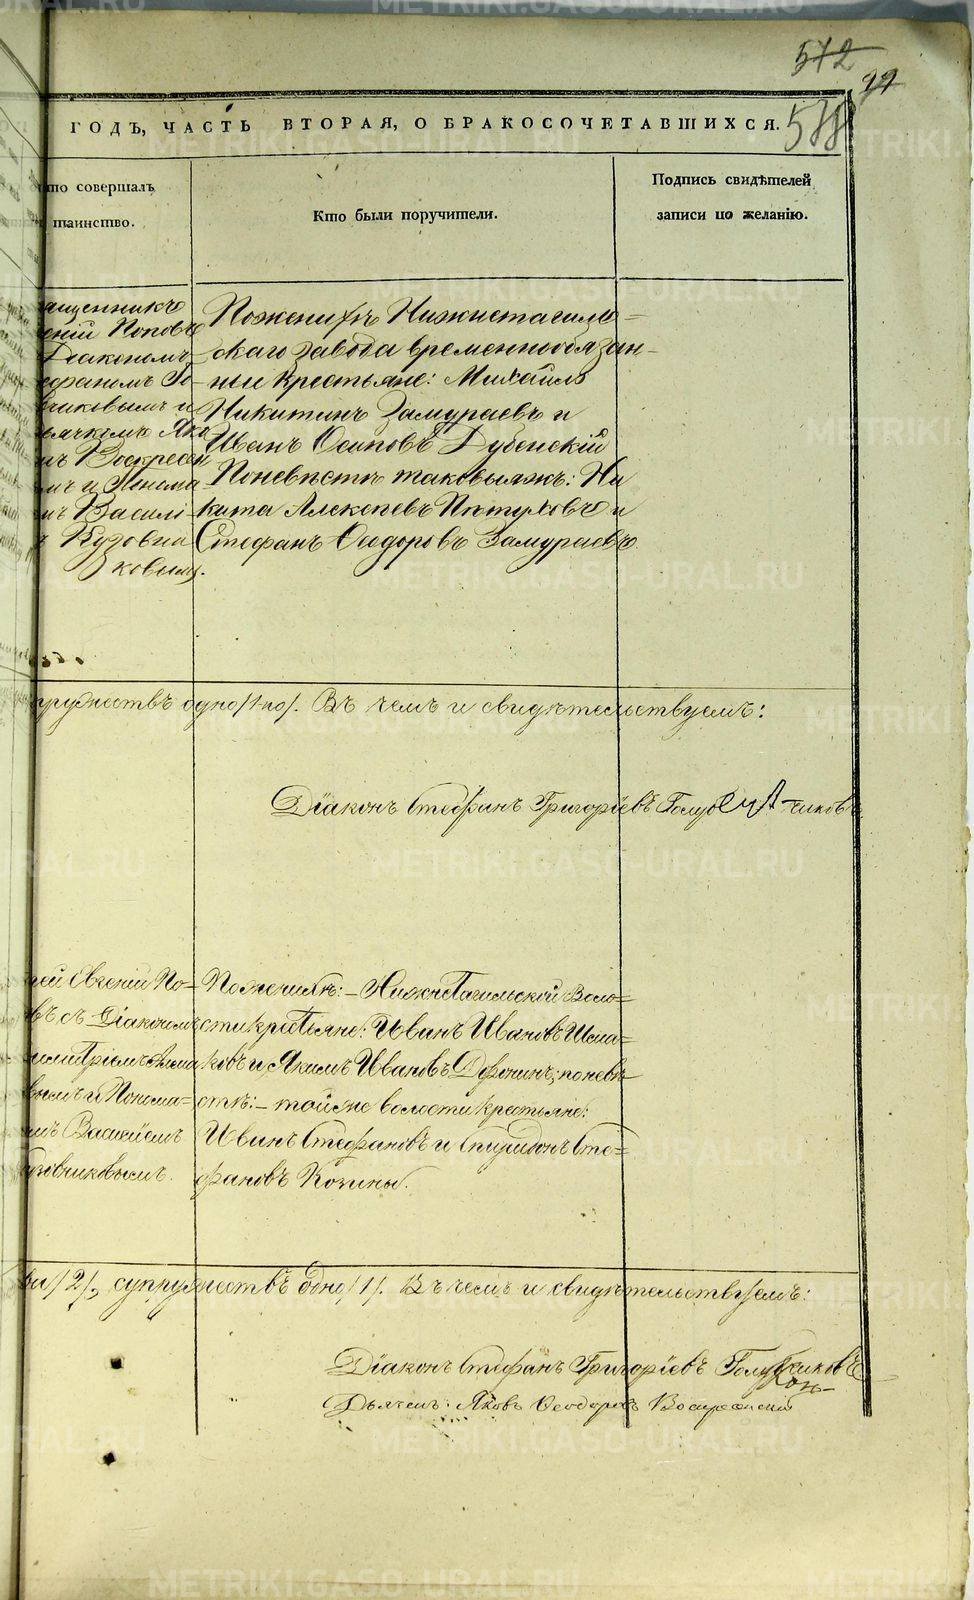 572
99
588
ГОДЪ, ЧАСТЬ ВТОРАЯ, О БРАКОСОЧЕТАВШИХСЯ.
то совершалъ
таинство.
Кто были поручители.
Подпись свидѣтелей
записи по желанію.
ащенникъ
еній Поповъ
Діакономъ
тефаномъ Го-
чиковымъ и
ьячкомъ Яко
мъ Воскресен
мъ и Понома
мъ Василі-
Кузовни
ковымъ.
По женихѣ Нижнетагиль-
скаго завода временнообязан-
ные крестьяне: Михаилъ
Никитинъ Замураевъ и
Иванъ Осиповъ Дубенскій
По невѣстѣ таковыяжъ: Ни
кита Алексѣевъ Пѣтуховъ и
Стефанъ Сидоровъ Замураевъ
пружествъ одно /1-но/. Въ чемъ и свидѣтельствуемъ:
Діаконъ Стефанъ Григоріевъ Голуб чиковъ
рей Евгеній По-
въ съ Діакономъ
имитріемъ
вымъ и Понома-
мъ Василіемъ
узовниковымъ.
По женихѣ:- Нижнетагильской Воло-
сти крестьяне: Иванъ Ивановъ Шма-
ковъ и Якимъ Ивановъ; по невѣ-
стѣ:- тойже волости крестьяне:
Иванъ Стефановъ и Спиридонъ Сте-
фановъ Козины.
ва /2/, супружествъ одно /1/. Въ чемъ и свидѣтельствуемъ:
Діаконъ Стефанъ Григоріевъ Голубчиковъ
Дьячекъ: Яковъ Ѳеодоровъ Воскресенскій
METRIKI.GASO-URAL.RU